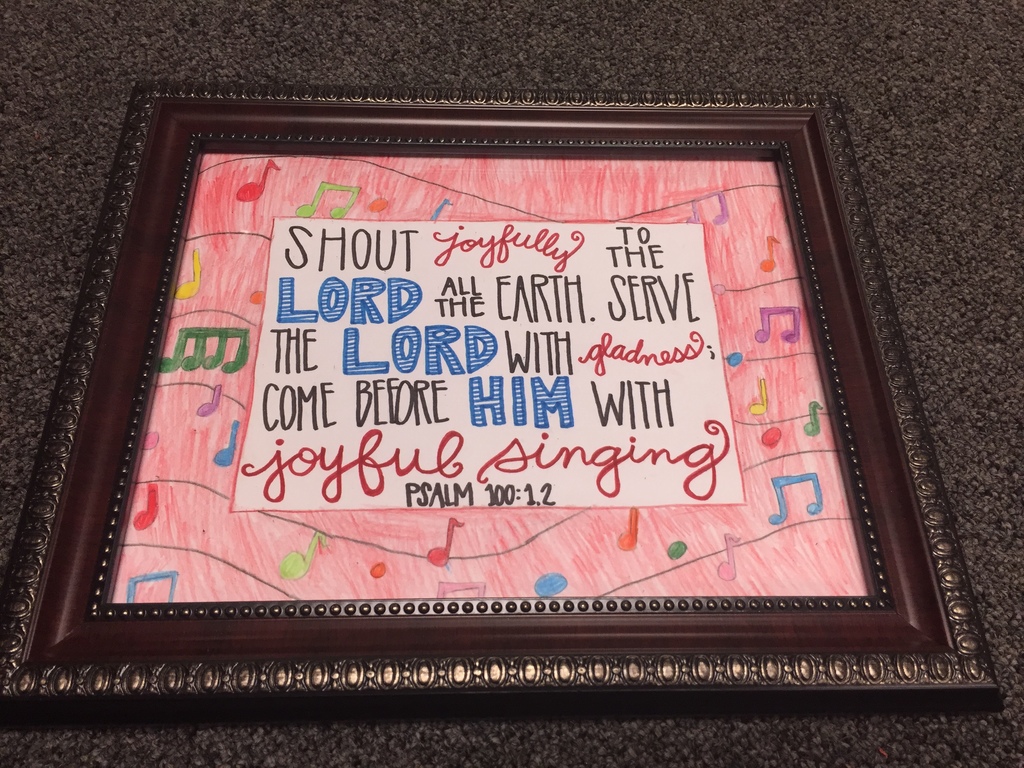 SHOUT joyfully TO THE
LORD ALL THE EARTH. SERVE
THE LORD WITH gladness;
COME BEFORE HIM WITH
joyful singing
PSALM 100:1.2